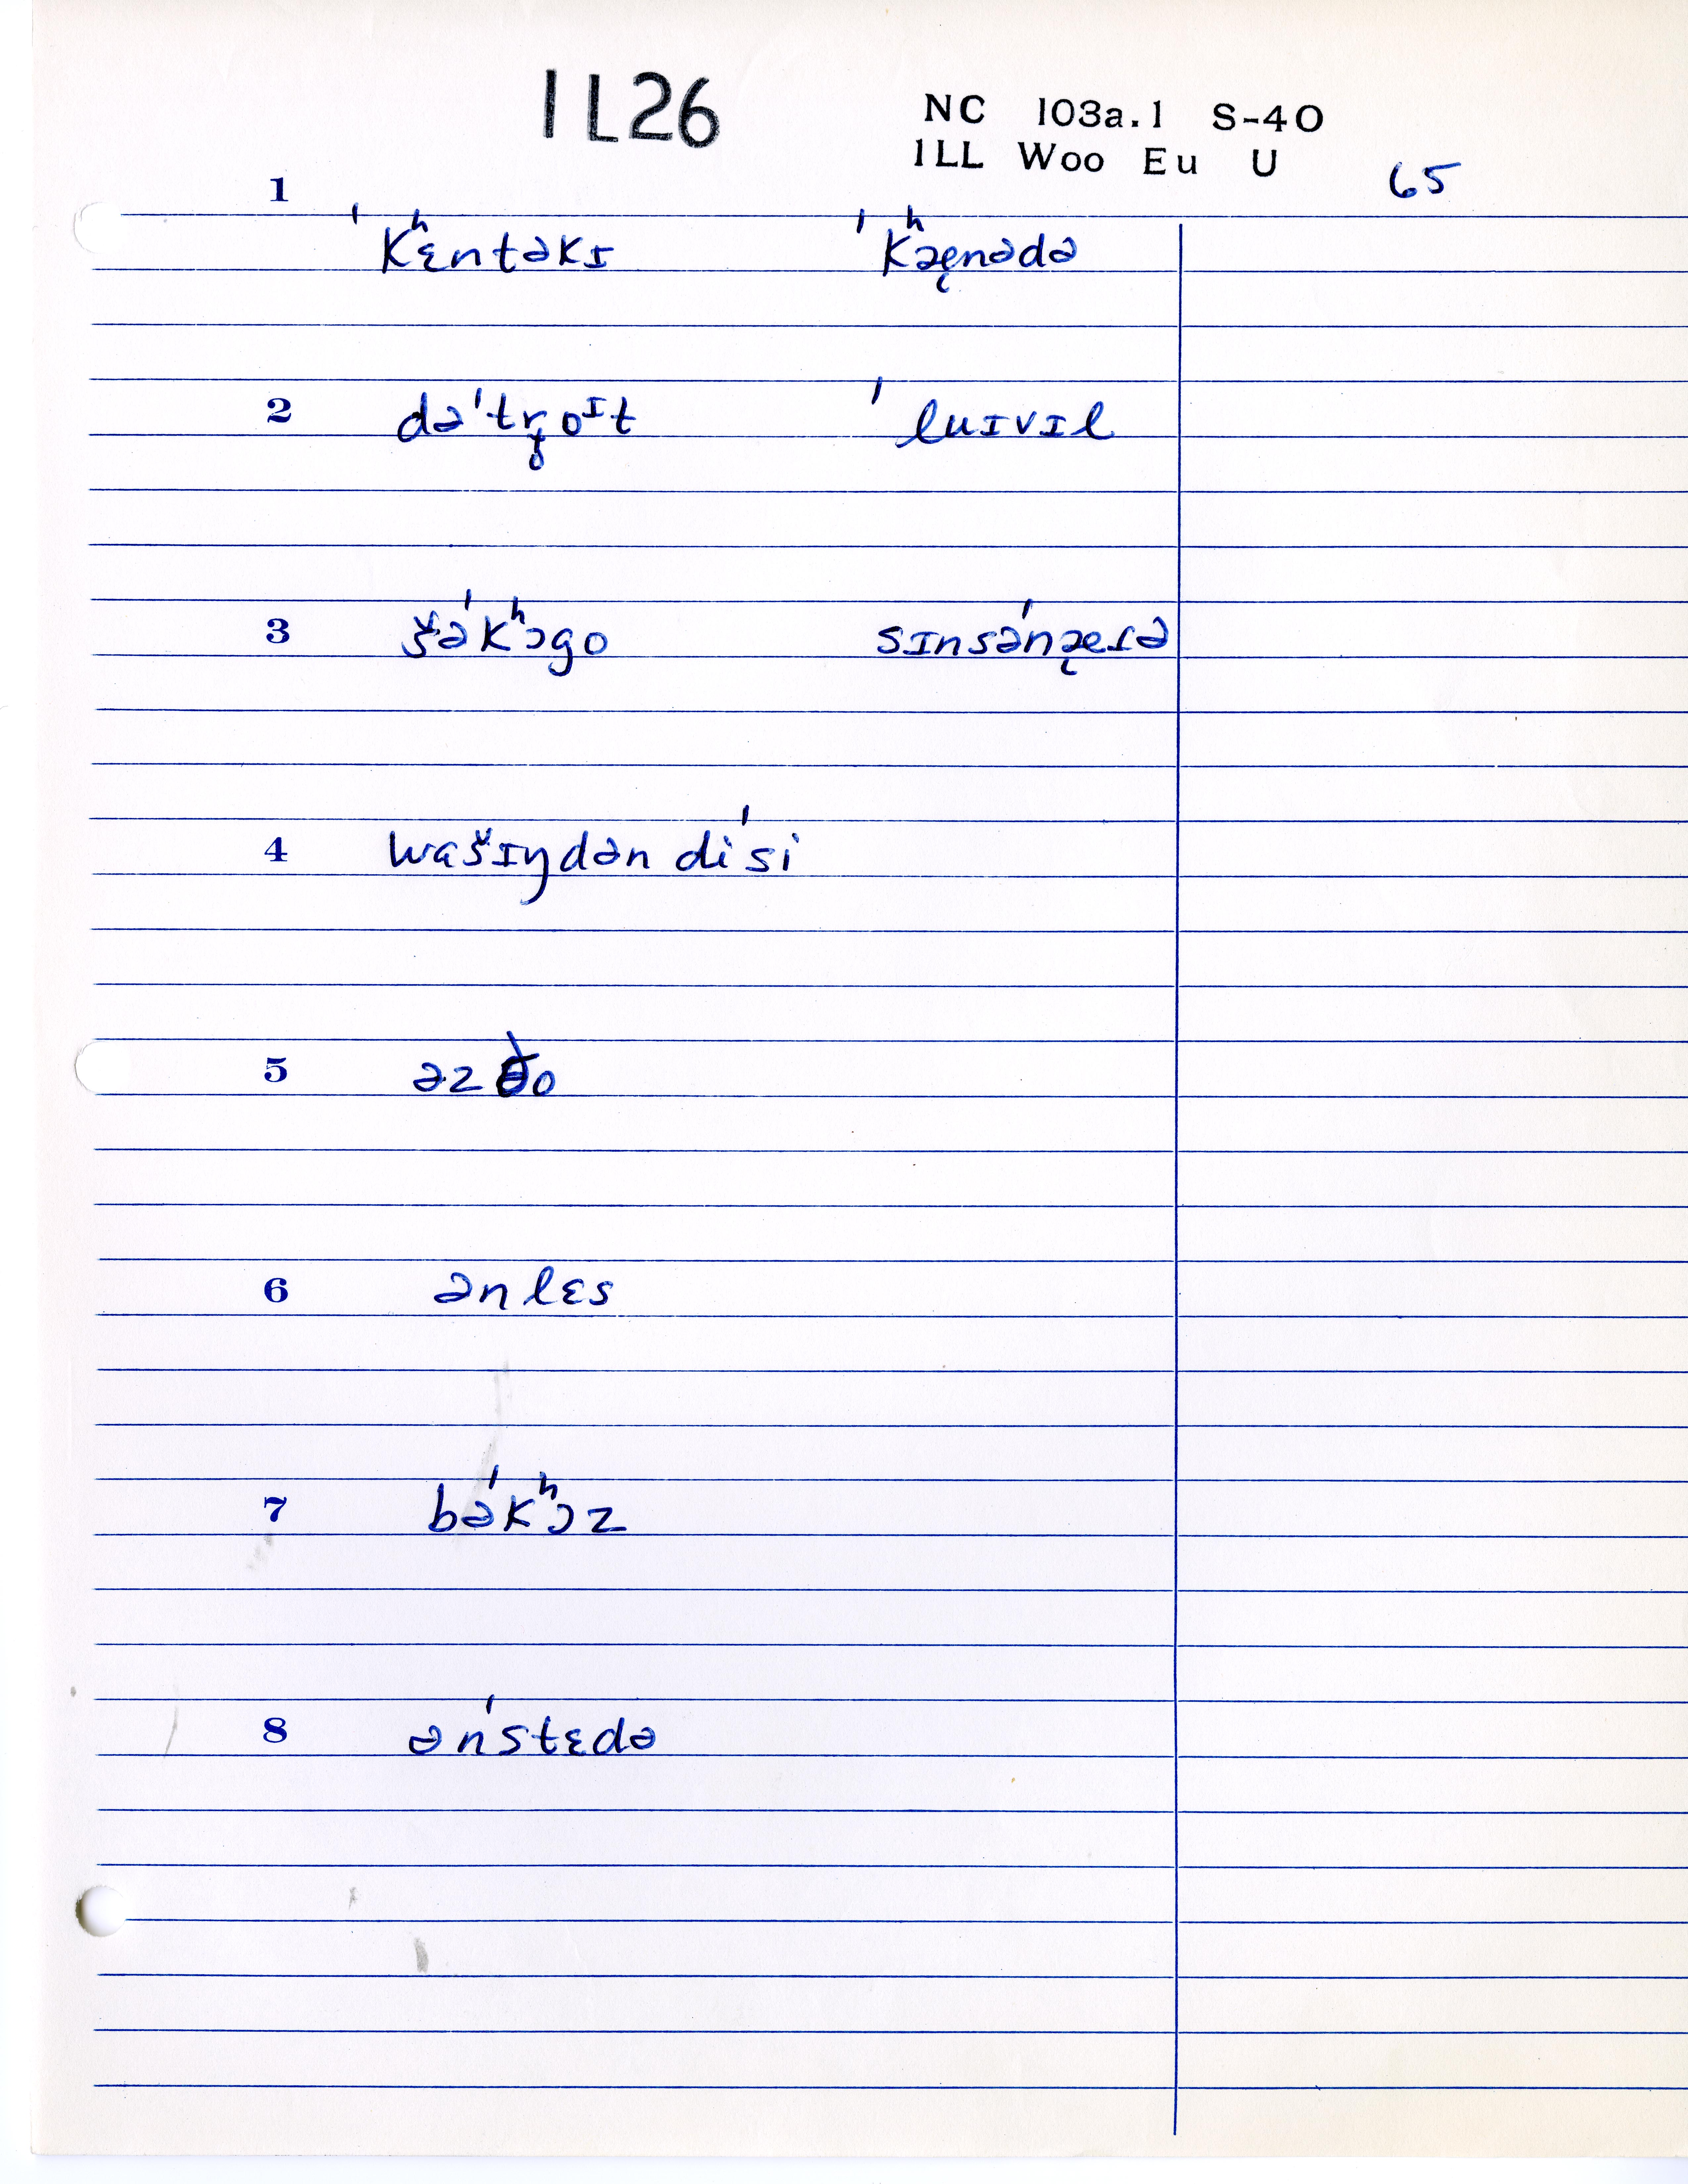 IL26
NC 103a.1 S-40
ILL Woo Eu U
65
1 ˈkʰɛntəkɪ ˈkʰæ̨nədə
2 dəˈtr̥oᶦt ˈluɪvɪl
3 šəˈkʰɔgo sɪnsəˈnæ̨ɾə
4 wašɪŋdən diˈsi
5 əz ðo
6 ənlɛs
7 bəˈkʰɔz
8 ənˈstɛdə